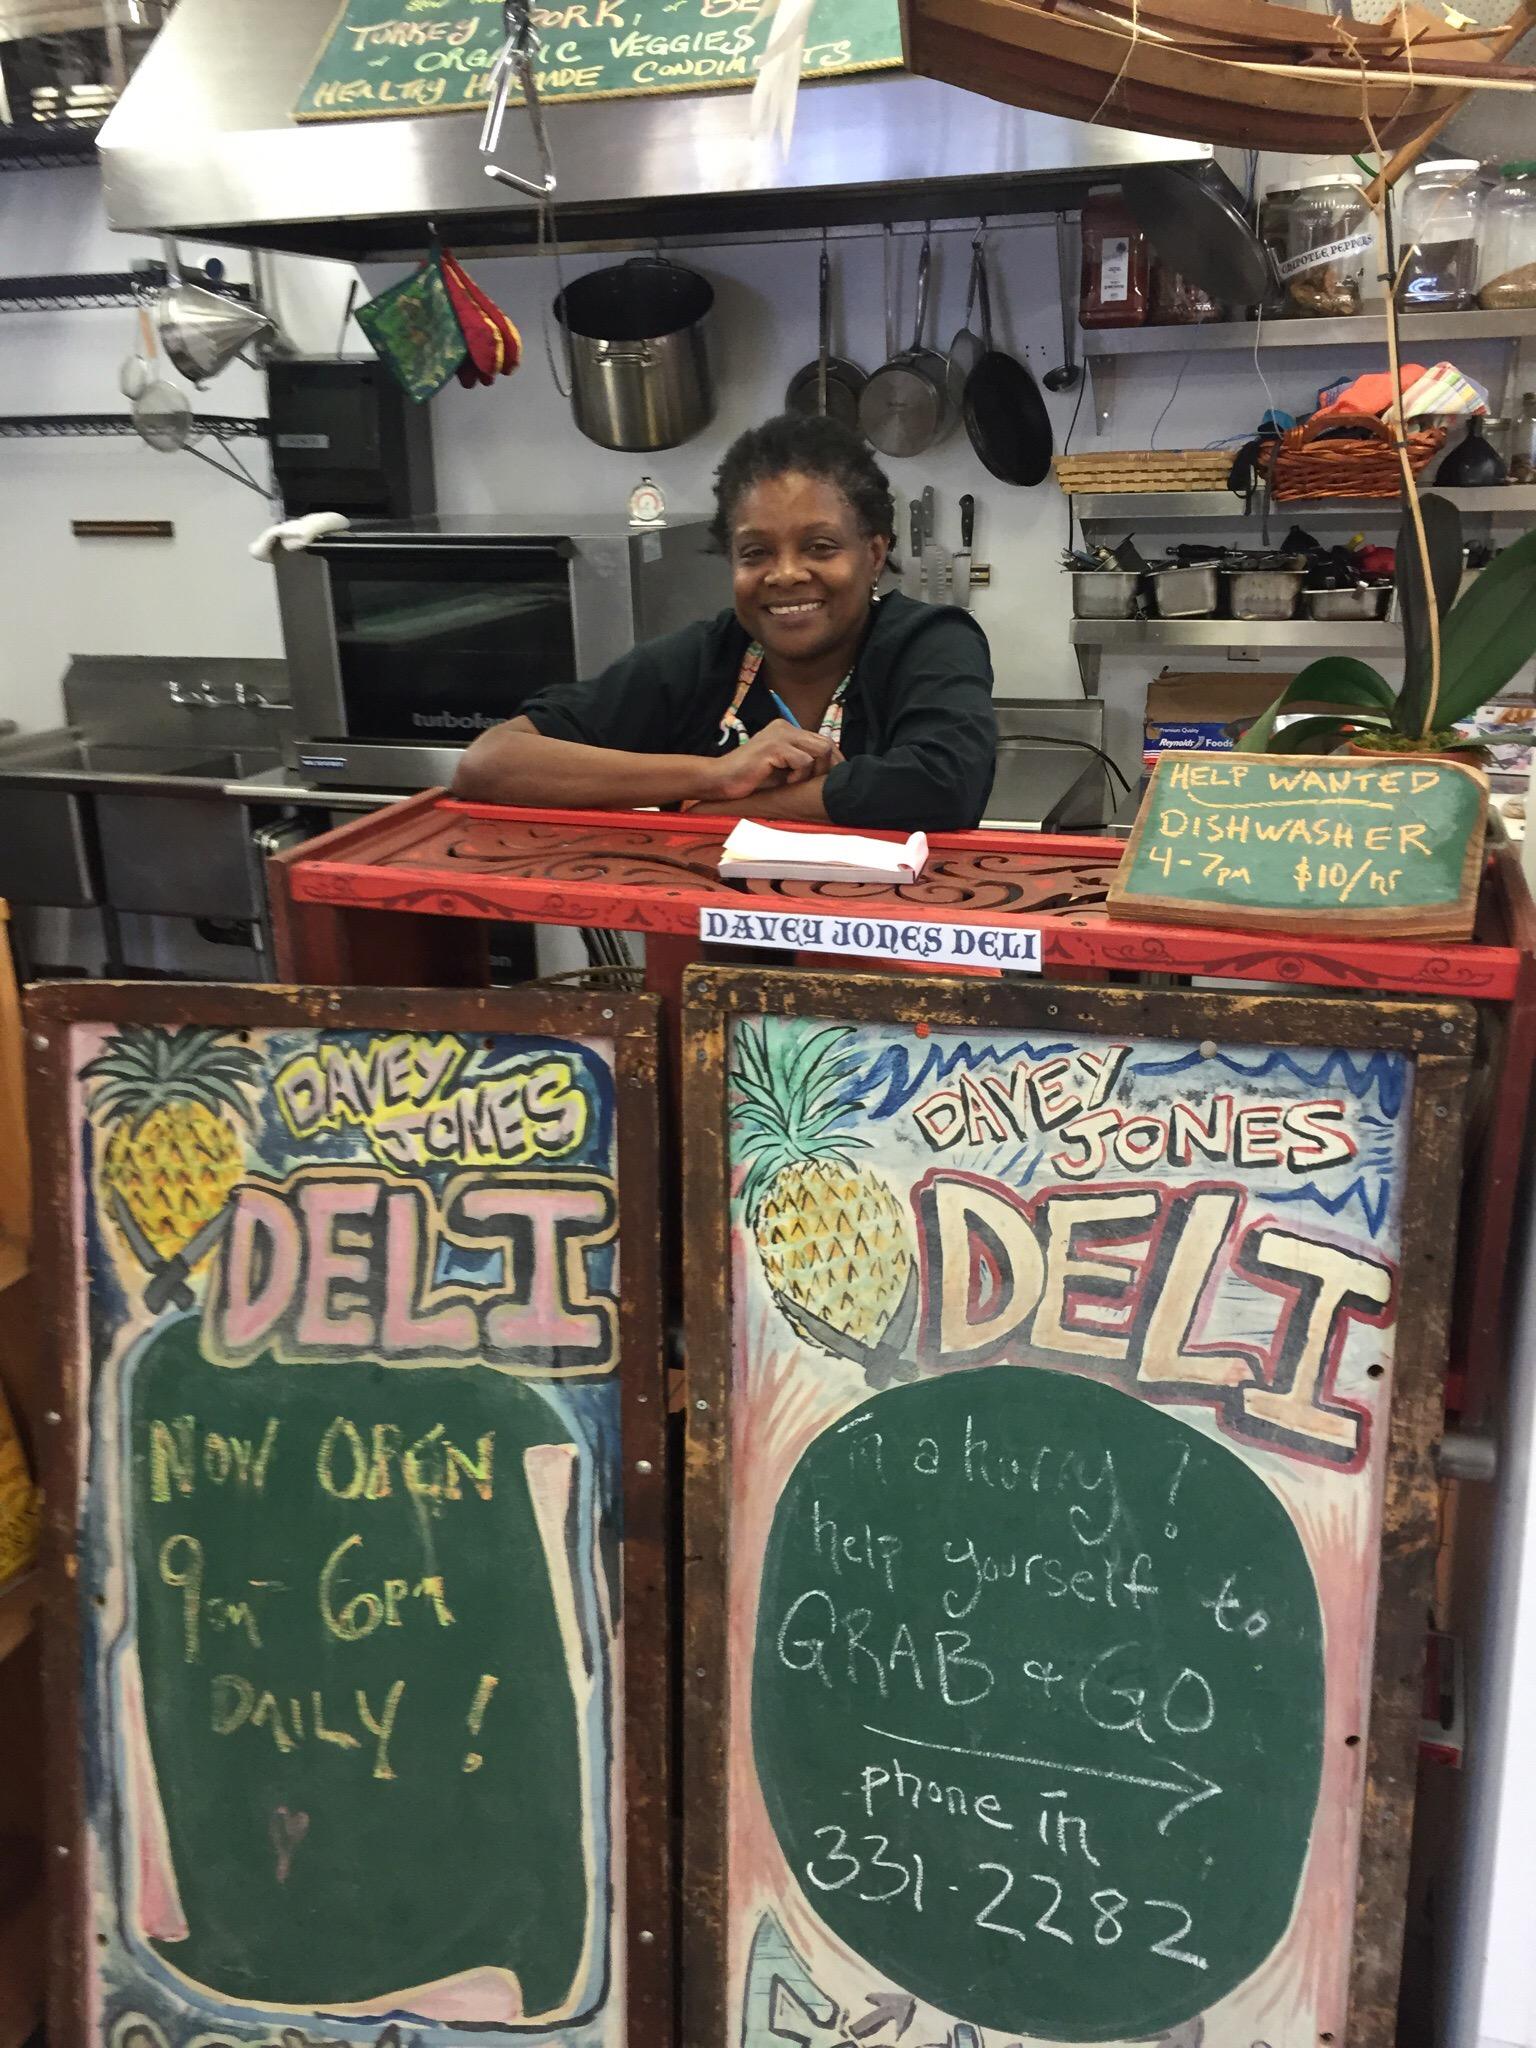 TURKEY, PORK, or BE
ORGANIC VEGGIES
HEALTHY HANDMADE CONDIMENTS
CHIPOTLE PEPPERS
turbofan
Premium Quality
Reynolds Foods
HELP WANTED
DISHWASHER
4-7pm $10/hr
DAVEY JONES DELI
DAVEY
JONES
DELI
NOW OPEN
9am - 6pm
DAILY!
DAVEY
JONES
DELI
in a hurry?
help yourself to
GRAB + GO
phone in
331-2282